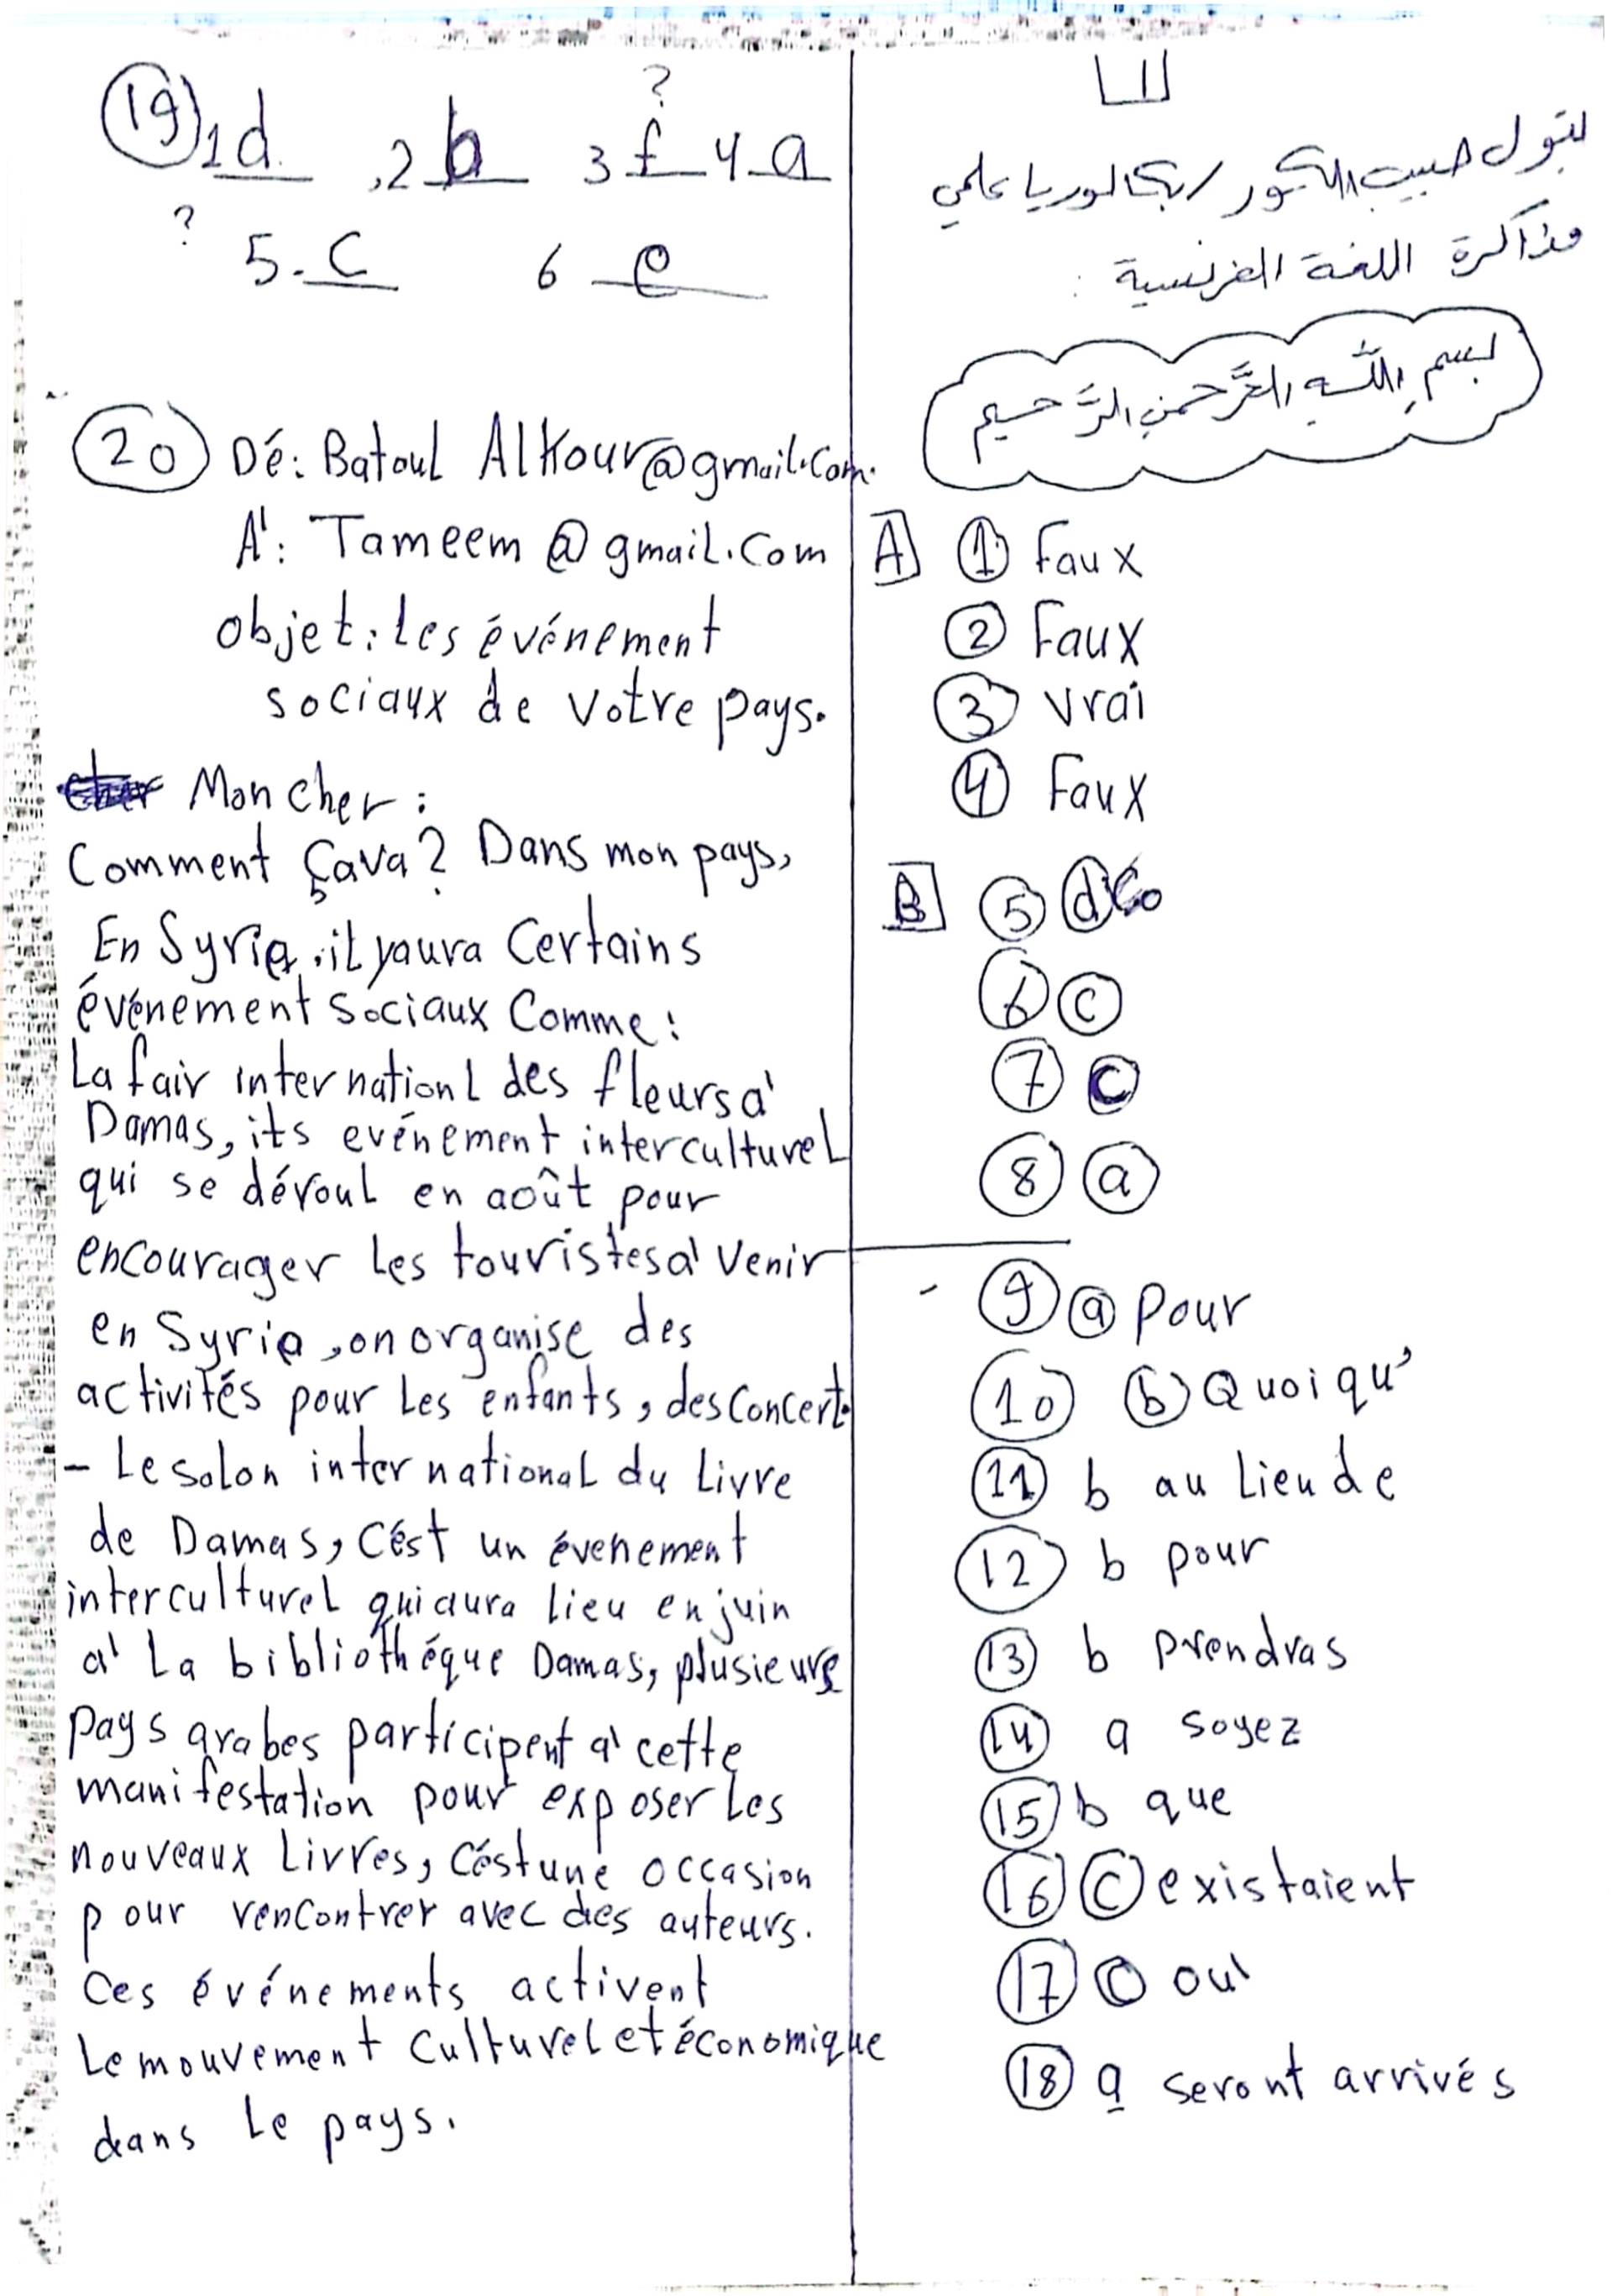 بتول حبيب الكور / بكالوريا علمي
مذاكرة اللغة الفرنسية :
بسم اللّه الرَّحمن الرَّحيم
A ① Faux
② Faux
③ vrai
④ Faux
B ⑤ d
⑥ c
⑦ c
⑧ a
⑨ a pour
⑩ b Quoiqu'
⑪ b au lieu de
⑫ b pour
⑬ b prendras
⑭ a soyez
⑮ b que
⑯ c existaient
⑰ c où
⑱ a seront arrivés
?
⑲ 1 d , 2 b 3 f 4 a
?
5. c 6 e
⑳ Dé: Batoul AlKour@gmail.com.
A': Tameem @ gmail.com
objet: les événement
sociaux de votre pays.
Mon cher :
Comment çava? Dans mon pays,
En Syrie, il yaura certains
événement sociaux comme:
La fair internationl des fleurs à
Damas, its evénement interculturel
qui se déroul en août pour
encourager les touristes à venir
en Syrie, on organise des
activités pour les enfants, des concert.
- Le salon international du livre
de Damas, C'ést un évenement
interculturel qui aura lieu en juin
à la bibliothéque Damas, plusieurs
pays arabes participent à cette
manifestation pour exposer les
nouveaux livres, C'ést une occasion
pour rencontrer avec des auteurs.
Ces événements activent
Le mouvement culturel et économique
dans le pays.